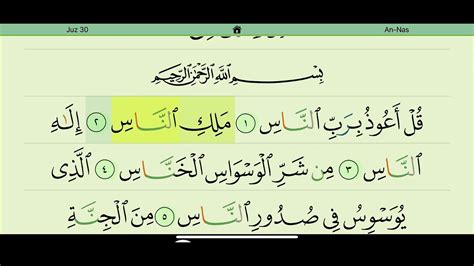 Juz 30 An-Nas
بِسْمِ ٱللَّهِ ٱلرَّحْمَٰنِ ٱلرَّحِيمِ
قُلْ أَعُوذُ بِرَبِّ ٱلنَّاسِ ١ مَلِكِ ٱلنَّاسِ ٢ إِلَٰهِ
ٱلنَّاسِ ٣ مِن شَرِّ ٱلْوَسْوَاسِ ٱلْخَنَّاسِ ٤ ٱلَّذِى
يُوَسْوِسُ فِى صُدُورِ ٱلنَّاسِ ٥ مِنَ ٱلْجِنَّةِ